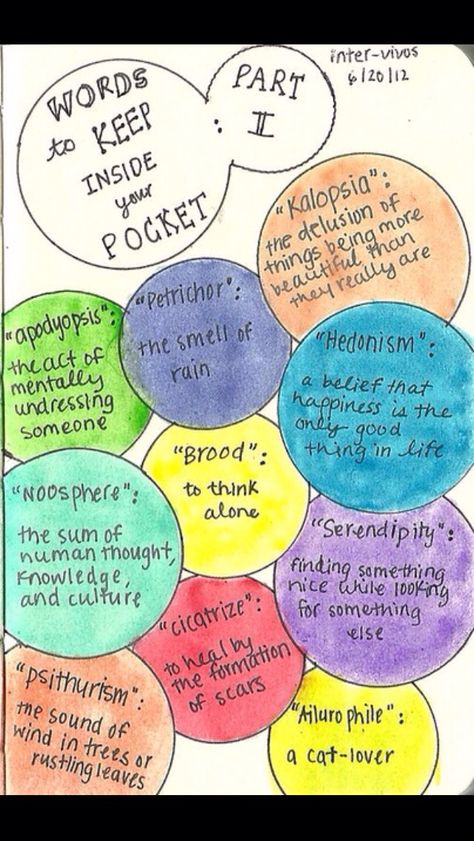 inter-vivos
6/20/12
WORDS
to KEEP
INSIDE
your
POCKET
:
PART
II
"Kalopsia":
the delusion of
things being more
beautiful than
they really are
"Petrichor":
the smell of
rain
"apodyopsis":
the act of
mentally
undressing
someone
"Hedonism":
a belief that
happiness is the
only good
thing in life
"Brood":
to think
alone
"Noosphere":
the sum of
human thought,
knowledge,
and culture
"Serendipity":
finding something
nice while looking
for something
else
"cicatrize":
to heal by
the formation
of scars
"psithurism":
the sound of
wind in trees or
rustling leaves
"Ailurophile":
a cat-lover